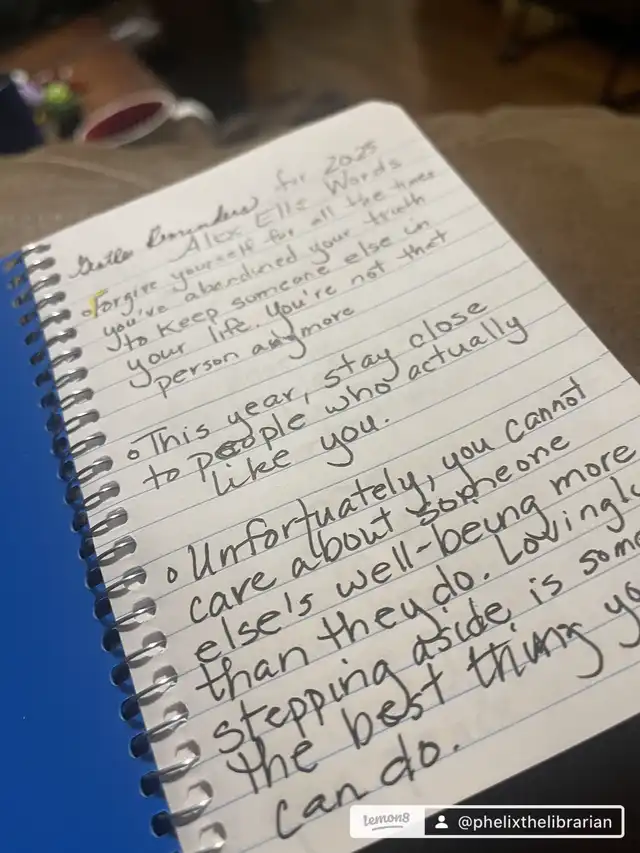 Gentle Reminders for 2025
Alex Elle Words
Forgive yourself for all the times
you've abandoned your truth
to keep someone else in
your life. You're not that
person anymore
This year, stay close
to people who actually
like you.
Unfortuately, you cannot
care about someone
else's well-being more
than they do. Lovingly
stepping aside is some
the best thing yo
can do.
lemon8
@phelixthelibrarian